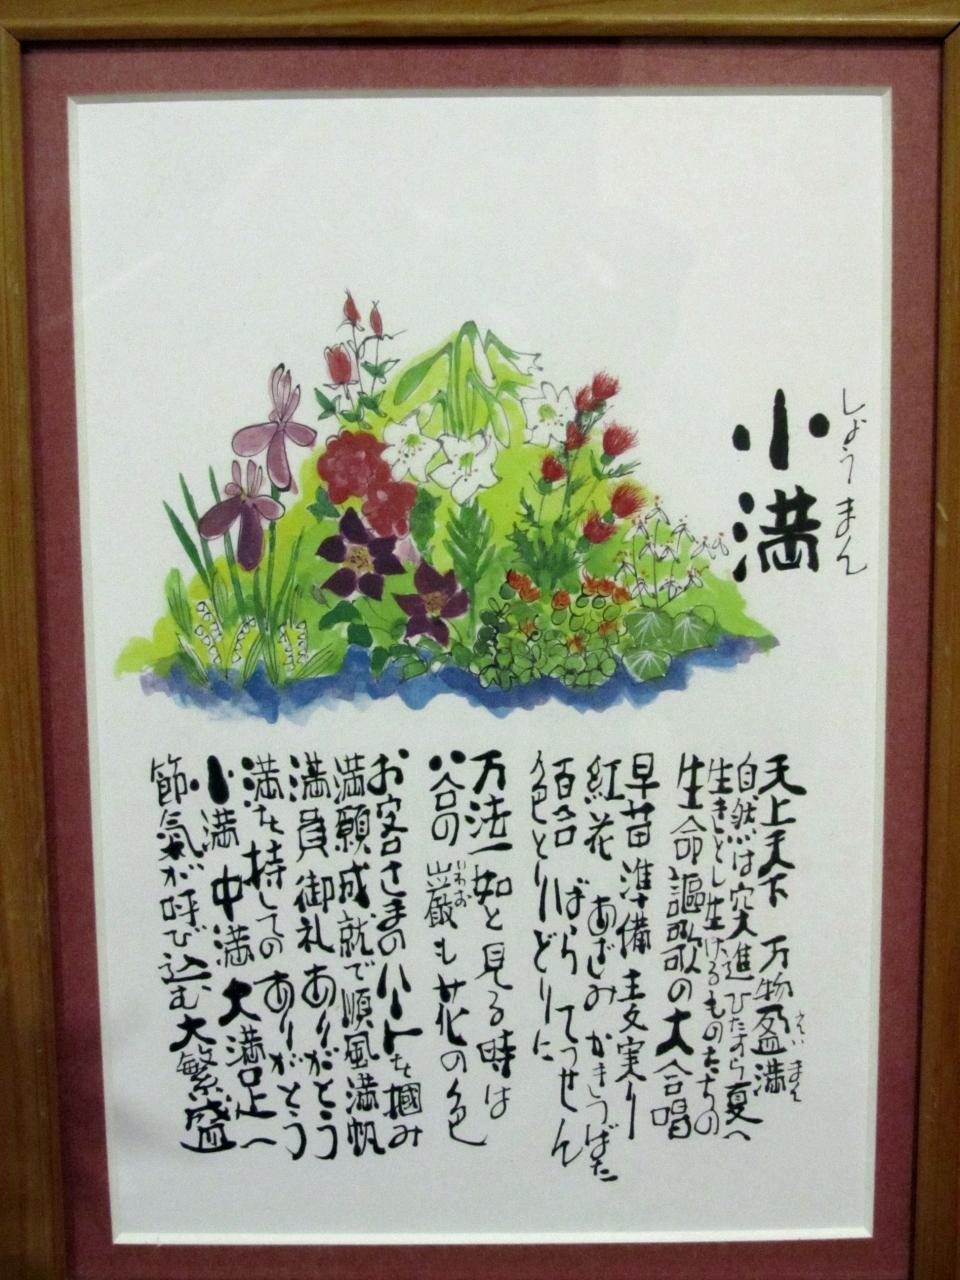 小満
しょうまん
天上天下 万物盈満
えいまん
自然は突進ひたすら夏へ
生きとし生けるものたちの
生命謳歌の大合唱
早苗準備 麦実り
紅花 あざみ かきつばた
百合 ばら てっせん
色とりどりに
万法一如と見る時は
谷の巌も花の色
いわお
お客さまのハートを掴み
満願成就で順風満帆
満員御礼ありがとう
満を持しての ありがとう
小満 中満 大満足へ
節氣が呼び込む大繁盛